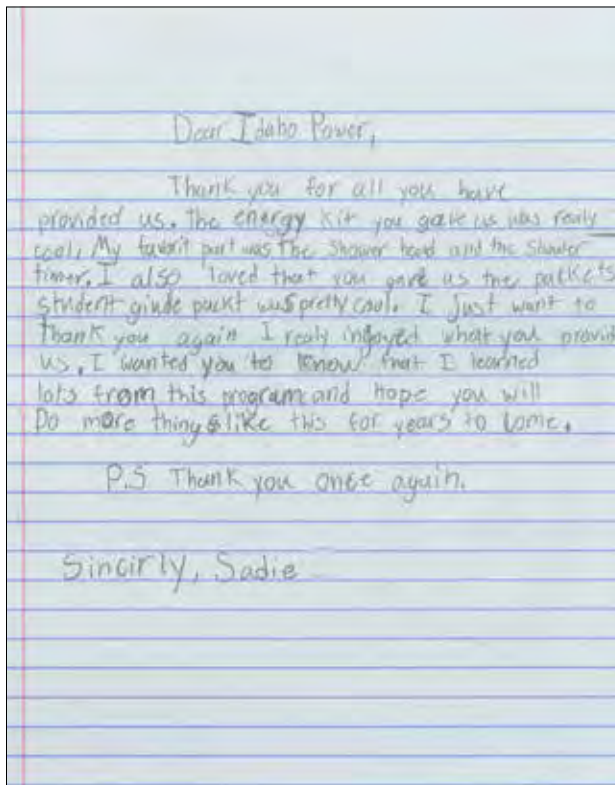 Dear Idaho Power,
Thank you for all you have
provided us. The energy kit you gave us was realy
cool, My favorit part was The Shower head and the Shower
timer. I also loved that you gave us the packets
student giude packt was pretty cool. I just want to
Thank you again I realy injoyed what you provid
us, I wanted you to know that I learned
lots from this program and hope you will
Do more things like this for years to come.
P.S Thank you once again.
Sincirly, Sadie